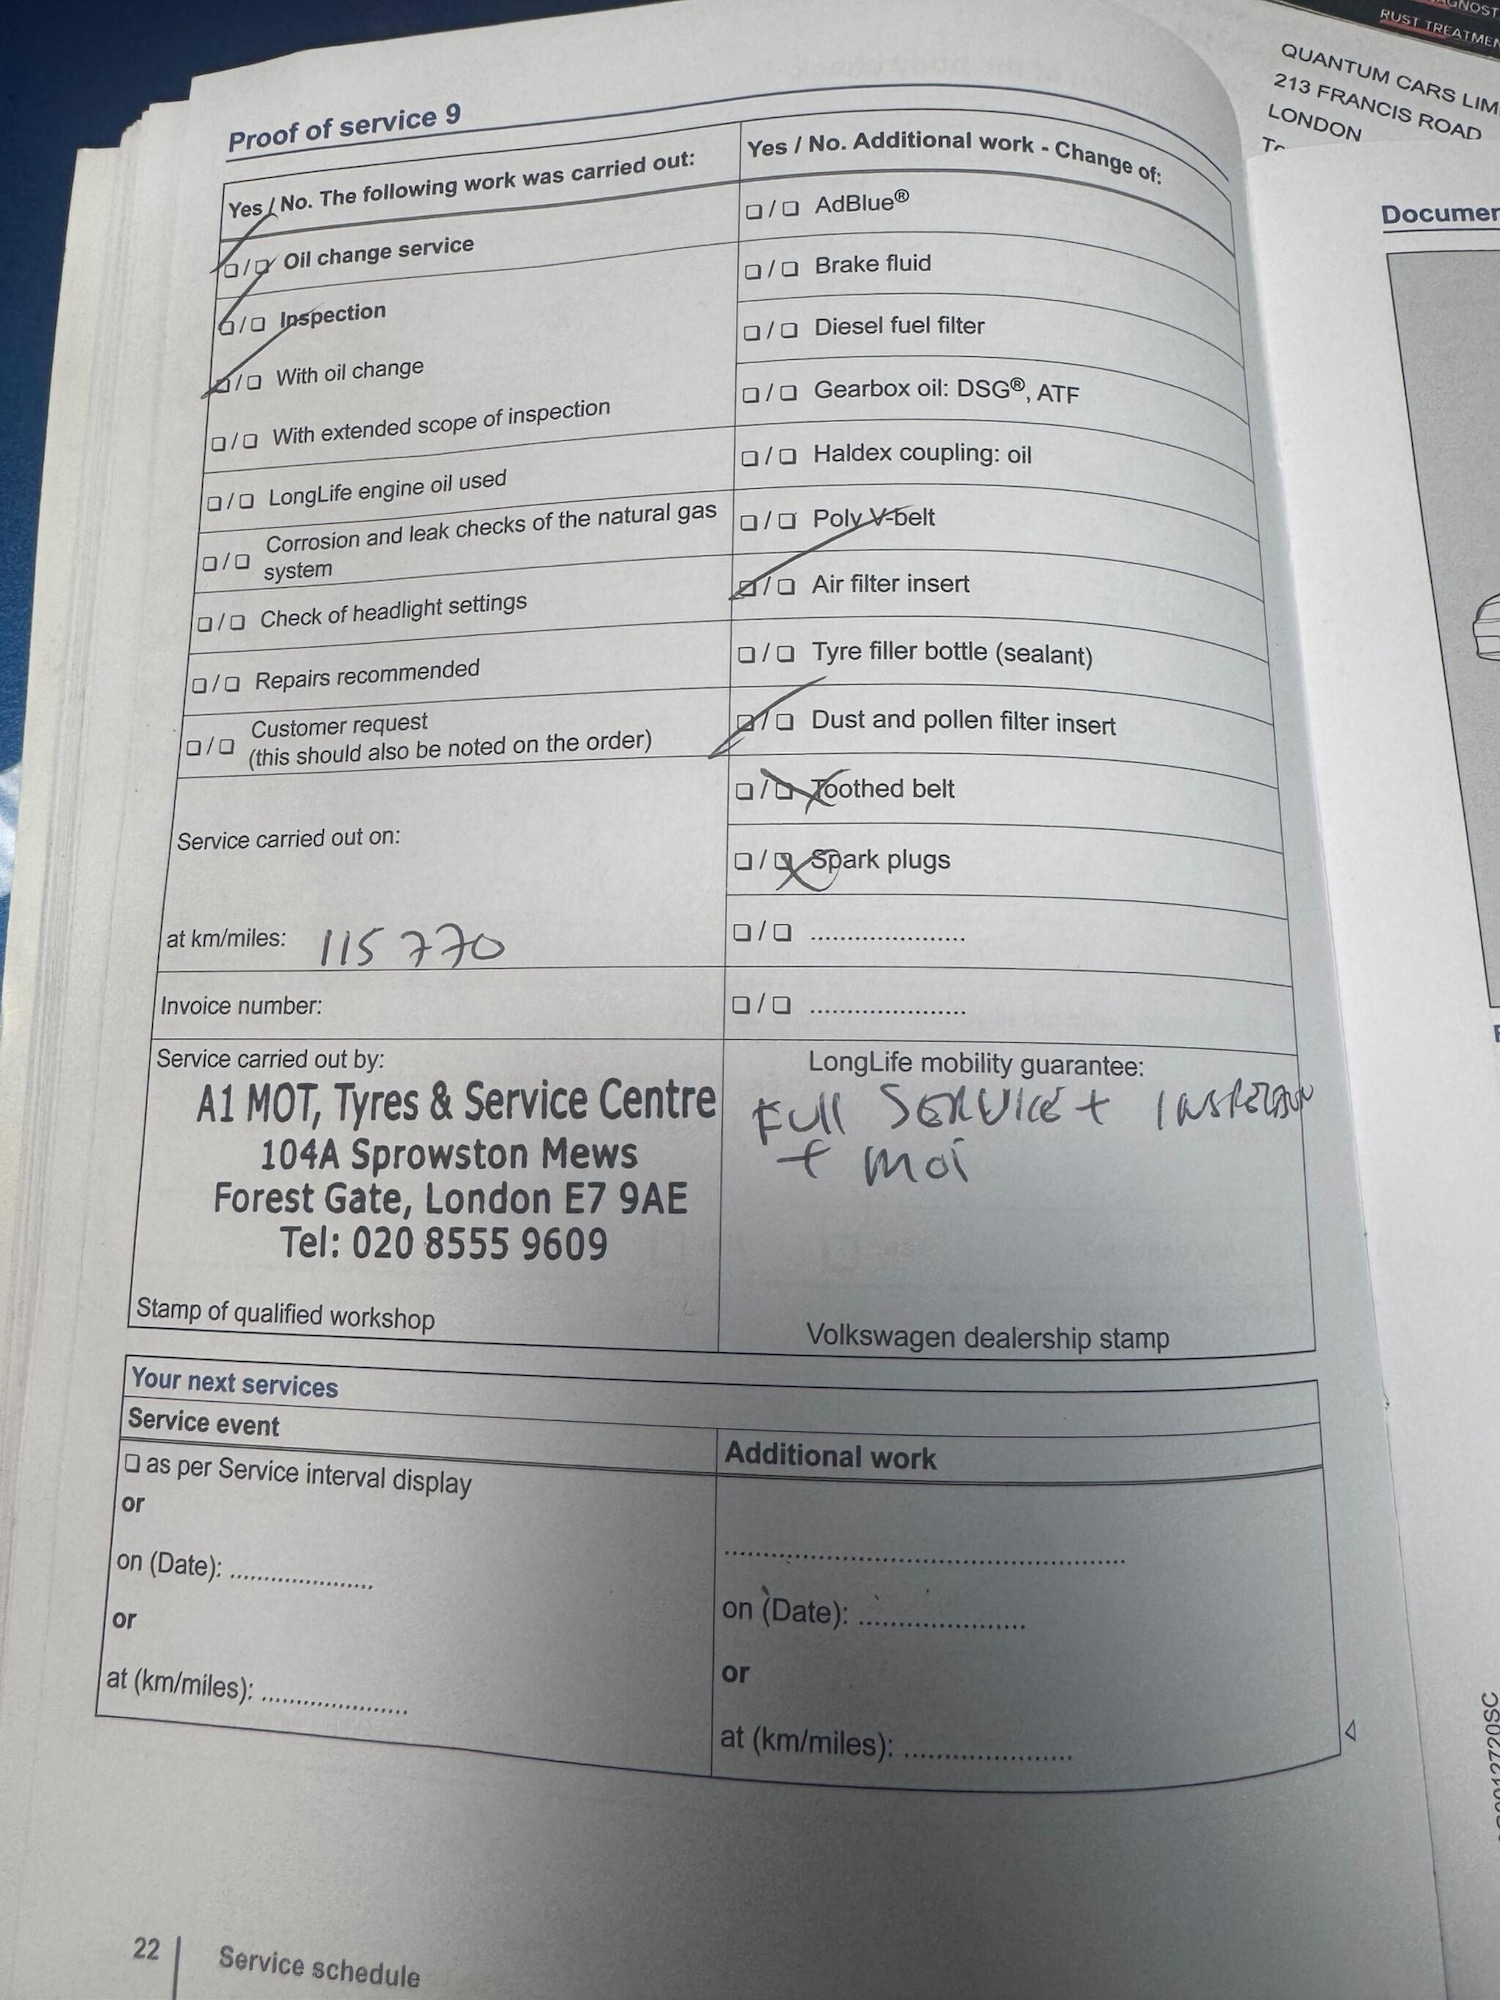 GNOST
RUST TREATMEN
QUANTUM CARS LIM
213 FRANCIS ROAD
LONDON
Proof of service 9
Yes / No. The following work was carried out:
❏ / ❏ Oil change service
❏ / ❏ Inspection
❏ / ❏ With oil change
❏ / ❏ With extended scope of inspection
❏ / ❏ LongLife engine oil used
❏ / ❏ Corrosion and leak checks of the natural gas
system
❏ / ❏ Check of headlight settings
❏ / ❏ Repairs recommended
❏ / ❏ Customer request
(this should also be noted on the order)
Service carried out on:
at km/miles: 115 770
Invoice number:
Service carried out by:
A1 MOT, Tyres & Service Centre
104A Sprowston Mews
Forest Gate, London E7 9AE
Tel: 020 8555 9609
Stamp of qualified workshop
Yes / No. Additional work - Change of:
❏ / ❏ AdBlue®
❏ / ❏ Brake fluid
❏ / ❏ Diesel fuel filter
❏ / ❏ Gearbox oil: DSG®, ATF
❏ / ❏ Haldex coupling: oil
❏ / ❏ Poly V-belt
❏ / ❏ Air filter insert
❏ / ❏ Tyre filler bottle (sealant)
❏ / ❏ Dust and pollen filter insert
❏ / ❏ Toothed belt
❏ / ❏ Spark plugs
❏ / ❏ ......................
❏ / ❏ ......................
LongLife mobility guarantee:
Full SERVICE +
+ MOT
Volkswagen dealership stamp
Your next services
Service event
❏ as per Service interval display
or
on (Date): ....................
or
at (km/miles): ....................
Additional work
............................................................
on (Date): .......................
or
at (km/miles): .......................
22 Service schedule
Documen